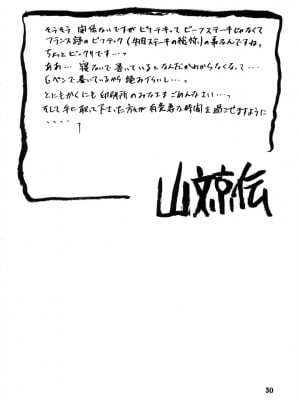 そうそう 関係ないですが ビフテキって ビーフステーキじゃなくて
フランス語の ビフテック (牛肉ステーキの総称)の事なんですね。
ちょっと ビックリです…っ
ああ… 寝ないで 書いていると なんだかわからなくなって…
Gペンで 書いているから 読みづらいし…っ
とにもかくにも 印刷所の みなさま ごめんなさい…っ
そして 手に取って下さった 方々が 有意義な時間を過ごせますように
----
山文京伝
30